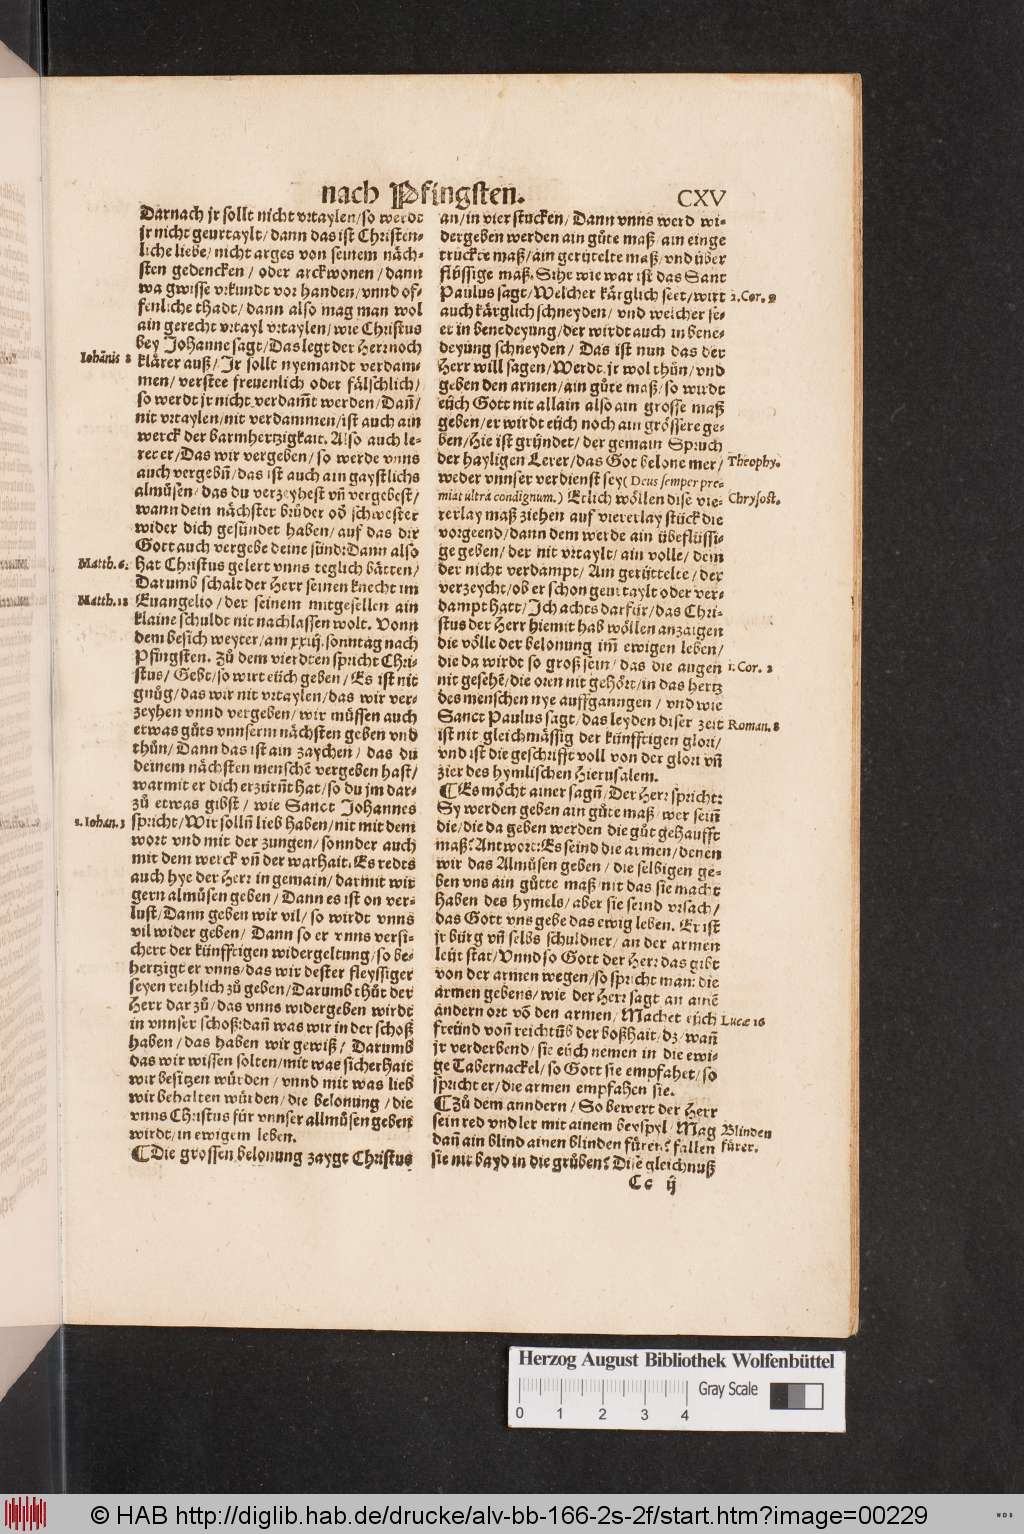 nach Pfingsten.
CXV
Darnach jr sollt nicht vrtaylen/so werdt
jr nicht geurtaylt/dann das ist Christen-
liche liebe/nicht arges von seinem näch-
sten gedencken/oder arckwonen/dann
wa gwisse vrkundt vor handen/vnnd of-
fenliche thadt/dann also mag man wol
ain gerecht vrtayl vrtaylen/wie Christus
bey Johanne sagt/Das legt der Herr noch
Iohãnis 8
klärer auß/Jr sollt nyemandt verdam-
men/verstee freuenlich oder fälschlich/
so werdt jr nicht verdam̃t werden/Dañ/
nit vrtaylen/nit verdammen/ist auch ain
werck der barmhertzigkait. Also auch le-
ret er/Das wir vergeben/so werde vnns
auch vergebñ/das ist auch ain gaystlichs
almůsen/das du verzeyhest vñ vergebest/
wann dein nächster brůder oď schwester
wider dich gesündet haben/auf das dir
Gott auch vergebe deine sünd:Dann also
Matth. 6.
hat Christus gelert vnns teglich bätten/
Darumb schalt der Herr seinen knecht im
Matth. 18
Euangelio/der seinem mitgesellen ain
klaine schuldt nit nachlassen wolt. Vonn
dem besich weyter/am xxiij. sonntag nach
Pfingsten. Zů dem vierdten spricht Chri-
stus/Gebt/so wirt eüch geben/Es ist nit
gnůg/das wir nit vrtaylen/das wir ver-
zeyhen vnnd vergeben/wir můssen auch
etwas gůts vnnserm nächsten geben vnd
thůn/Dann das ist ain zaychen/das du
deinem nächsten menschẽ vergeben hast/
warmit er dich erzürñt hat/so du jm dar-
zů etwas gibst/wie Sanct Johannes
1. Iohan. 3
spricht/Wir solln̄ lieb haben/nit mit dem
wort vnd mit der zungen/sonnder auch
mit dem werck vñ der warhait. Es redts
auch hye der Herr in gemain/darmit wir
gern almůsen geben/Dann es ist on ver-
lust/Dann geben wir vil/so wirdt vnns
vil wider geben/Dann so er vnns versi-
chert der künfftigen widergeltung/so be-
hertzigt er vnns/das wir dester fleyssiger
seyen reihlich zů geben/Darumb thůt der
Herr dar zů/das vnns widergeben wirdt
in vnnser schoß:dañ was wir in der schoß
haben/das haben wir gewiß/Darumb
das wir wissen solten/mit was sicherhait
wir besitzen würden/vnnd mit was lieb
wir behalten würden/die belonung/die
vnns Christus für vnnser allmůsen geben
wirdt/in ewigem leben.
¶Die grossen belonung zaygt Christus
an/in vier stucken/Dann vnns werd wi-
dergeben werden ain gůte maß/ain einge
truckte maß/ain gerütelte maß/vnd über
flüssige maß. Sihe wie war ist das Sant
Paulus sagt/Welcher kärglich seet/wirt
2. Cor. 9
auch kärglich schneyden/vnd welcher se-
et in benedeyung/der wirdt auch in bene-
deyung schneyden/Das ist nun das der
Herr will sagen/Werdt jr wol thůn/vnd
geben den armen/ain gůte maß/so wirdt
eüch Gott nit allain also ain grosse maß
geben/er wirdt eüch noch ain grössere ge-
ben/Hie ist gründet/der gemain Spruch
der hayligen Lerer/das Got belone mer/
Theophy.
weder vnnser verdienst sey (Deus semper pre-
miat ultra condignum.) Etlich wöllen dise vie-
Chrysost.
rerlay maß ziehen auf viererlay stück die
vorgeend/dann dem werde ain übeflüssi-
ge geben/der nit vrtaylt/ain volle/dem
der nicht verdampt/Ain gerüttelte/der
verzeycht/ob er schon geurtaylt oder ver-
dampt hatt/Jch achts darfür/das Chri-
stus der Herr hiemit hab wöllen anzaigen
die völle der belonung im̃ ewigen leben/
die da wirdt so groß sein/das die augen
1. Cor. 2
nit gesehẽ/die oren nit gehört/in das hertz
des menschen nye auffganngen/vnd wie
Sanct Paulus sagt/das leyden diser zeit
Roman. 8
ist nit gleichmässig der künfftigen glori/
vnd ist die geschrifft voll von der glori vñ
zier des hymlischen Hierusalem.
¶Es möcht ainer sagñ/Der Herr spricht:
Sy werden geben ain gůte maß/wer seiñ
die/die da geben werden die gůt gehaufft
maß? Antwort:Es seind die armen/denen
wir das Almůsen geben/die selbigen ge-
ben vns ain gůtte maß/nit das sie macht
haben des hymels/aber sie seind vrsach/
das Gott vns gebe das ewig leben. Er ist
jr bürg vñ selbs schuldner/an der armen
leüt stat/Vnnd so Gott der Herr das gibt
von der armen wegen/so spricht man:die
armen gebens/wie der Herr sagt an ainẽ
andern ort võ den armen/Machet eüch
Lucæ 16
freünd vonn reichtũb der boßhait/dz/wañ
jr verderbend/sie eüch nemen in die ewi-
ge Tabernackel/so Gott sie empfahet/so
spricht er/die armen empfahen sie.
¶Zů dem anndern/So bewert der Herr
sein red vnd ler mit ainem beyspyl/Mag
Blinden
dañ ain blind ainen blinden fůren? fallen
fůrer.
sie nit bayd in die grůben? Dise gleichnuß
Cc ij
Herzog August Bibliothek Wolfenbüttel
Gray Scale
0 1 2 3 4
© HAB http://diglib.hab.de/drucke/alv-bb-166-2s-2f/start.htm?image=00229